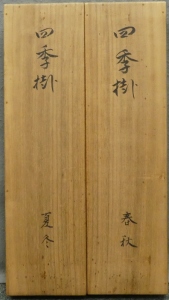 四季樹
春秋
四季樹
夏冬